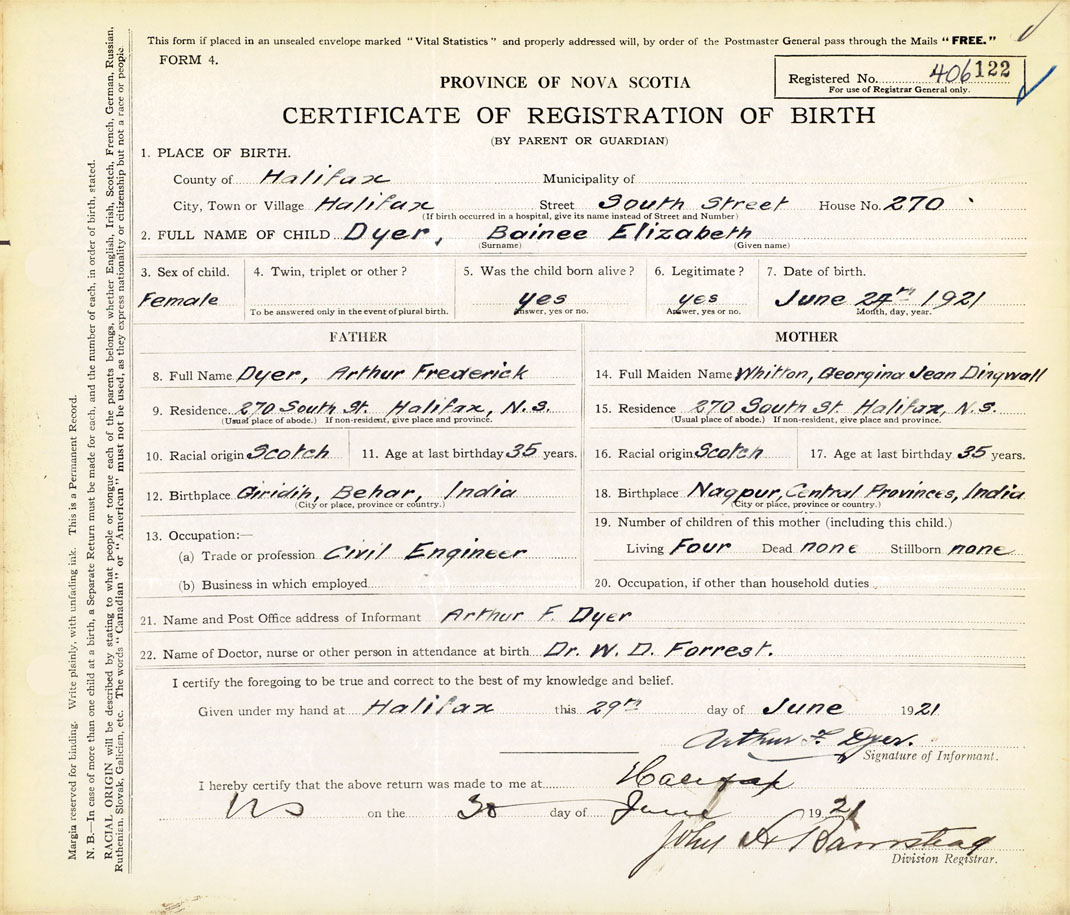 This form if placed in an unsealed envelope marked "Vital Statistics" and properly addressed will, by order of the Postmaster General pass through the Mails "FREE."
FORM 4.
PROVINCE OF NOVA SCOTIA
Registered No. 406122
For use of Registrar General only.
CERTIFICATE OF REGISTRATION OF BIRTH
(BY PARENT OR GUARDIAN)
1. PLACE OF BIRTH.
County of Halifax Municipality of
City, Town or Village Halifax Street South Street House No. 270
(If birth occurred in a hospital, give its name instead of Street and Number)
2. FULL NAME OF CHILD Dyer, Bainee Elizabeth
(Surname) (Given name)
3. Sex of child. 4. Twin, triplet or other? 5. Was the child born alive? 6. Legitimate? 7. Date of birth.
Female yes yes June 24th 1921
To be answered only in the event of plural birth. Answer, yes or no. Answer, yes or no. Month, day, year.
FATHER MOTHER
8. Full Name Dyer, Arthur Frederick 14. Full Maiden Name Whitton, Georgina Jean Dingwall
9. Residence 270 South St. Halifax, N.S. 15. Residence 270 South St. Halifax, N.S.
(Usual place of abode.) If non-resident, give place and province. (Usual place of abode.) If non-resident, give place and province.
10. Racial origin Scotch 11. Age at last birthday 35 years. 16. Racial origin Scotch 17. Age at last birthday 35 years.
12. Birthplace Giridih, Behar, India 18. Birthplace Nagpur, Central Provinces, India
(City or place, province or country.) (City or place, province or country.)
13. Occupation:— 19. Number of children of this mother (including this child.)
(a) Trade or profession Civil Engineer Living Four Dead none Stillborn none
(b) Business in which employed 20. Occupation, if other than household duties
21. Name and Post Office address of Informant Arthur F. Dyer
22. Name of Doctor, nurse or other person in attendance at birth Dr. W. D. Forrest.
I certify the foregoing to be true and correct to the best of my knowledge and belief.
Given under my hand at Halifax this 29th day of June 1921
Arthur F. Dyer.
Signature of Informant.
I hereby certify that the above return was made to me at Halifax
NS on the 30 day of June 1921
John A Barnstead
Division Registrar.
Margin reserved for binding. Write plainly, with unfading ink. This is a Permanent Record.
N. B.—In case of more than one child at a birth, a Separate Return must be made for each, and the number of each, in order of birth, stated.
RACIAL ORIGIN will be described by stating to what people or tongue each of the parents belongs, whether English, Irish, Scotch, French, German, Russian,
Ruthenian, Slovak, Galician, etc. The words "Canadian" or "American" must not be used, as they express nationality or citizenship but not a race or people.